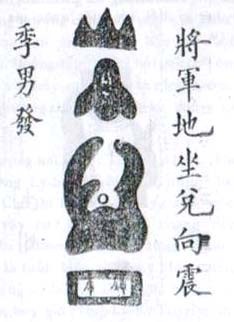 將軍地坐兌向震
季男發